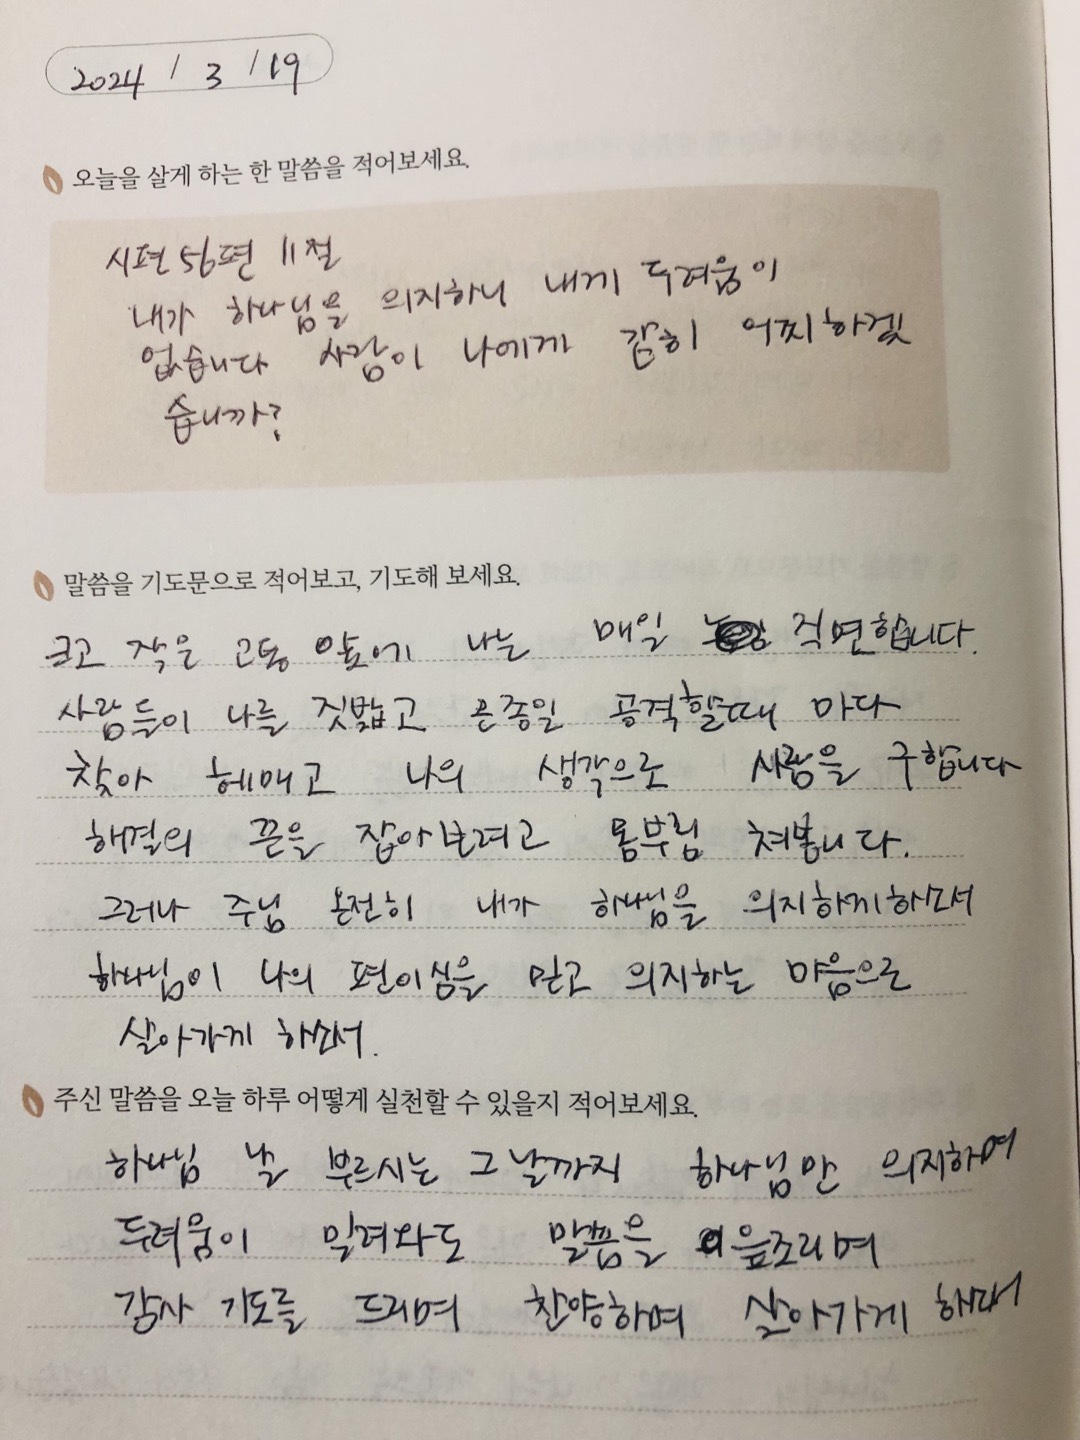 2024 / 3 / 19
오늘을 살게 하는 한 말씀을 적어보세요.
시편 56편 11절
내가 하나님을 의지하니 내게 두려움이
없습니다 사람이 나에게 감히 어찌하겠
습니까?
말씀을 기도문으로 적어보고, 기도해 보세요.
크고 작은 고통 앞에 나는 매일 직면합니다.
사람들이 나를 짓밟고 온종일 공격할때 마다
찾아 헤매고 나의 생각으로 사람을 구합니다
해결의 끈을 잡아보려고 몸부림 쳐봅니다.
그러나 주님 온전히 내가 하나님을 의지하게하소서
하나님이 나의 편이심을 믿고 의지하는 마음으로
살아가게 하소서.
주신 말씀을 오늘 하루 어떻게 실천할 수 있을지 적어보세요.
하나님 날 부르시는 그날까지 하나님만 의지하며
두려움이 밀려와도 말씀을 읊조리며
감사 기도를 드리며 찬양하며 살아가게 하소서